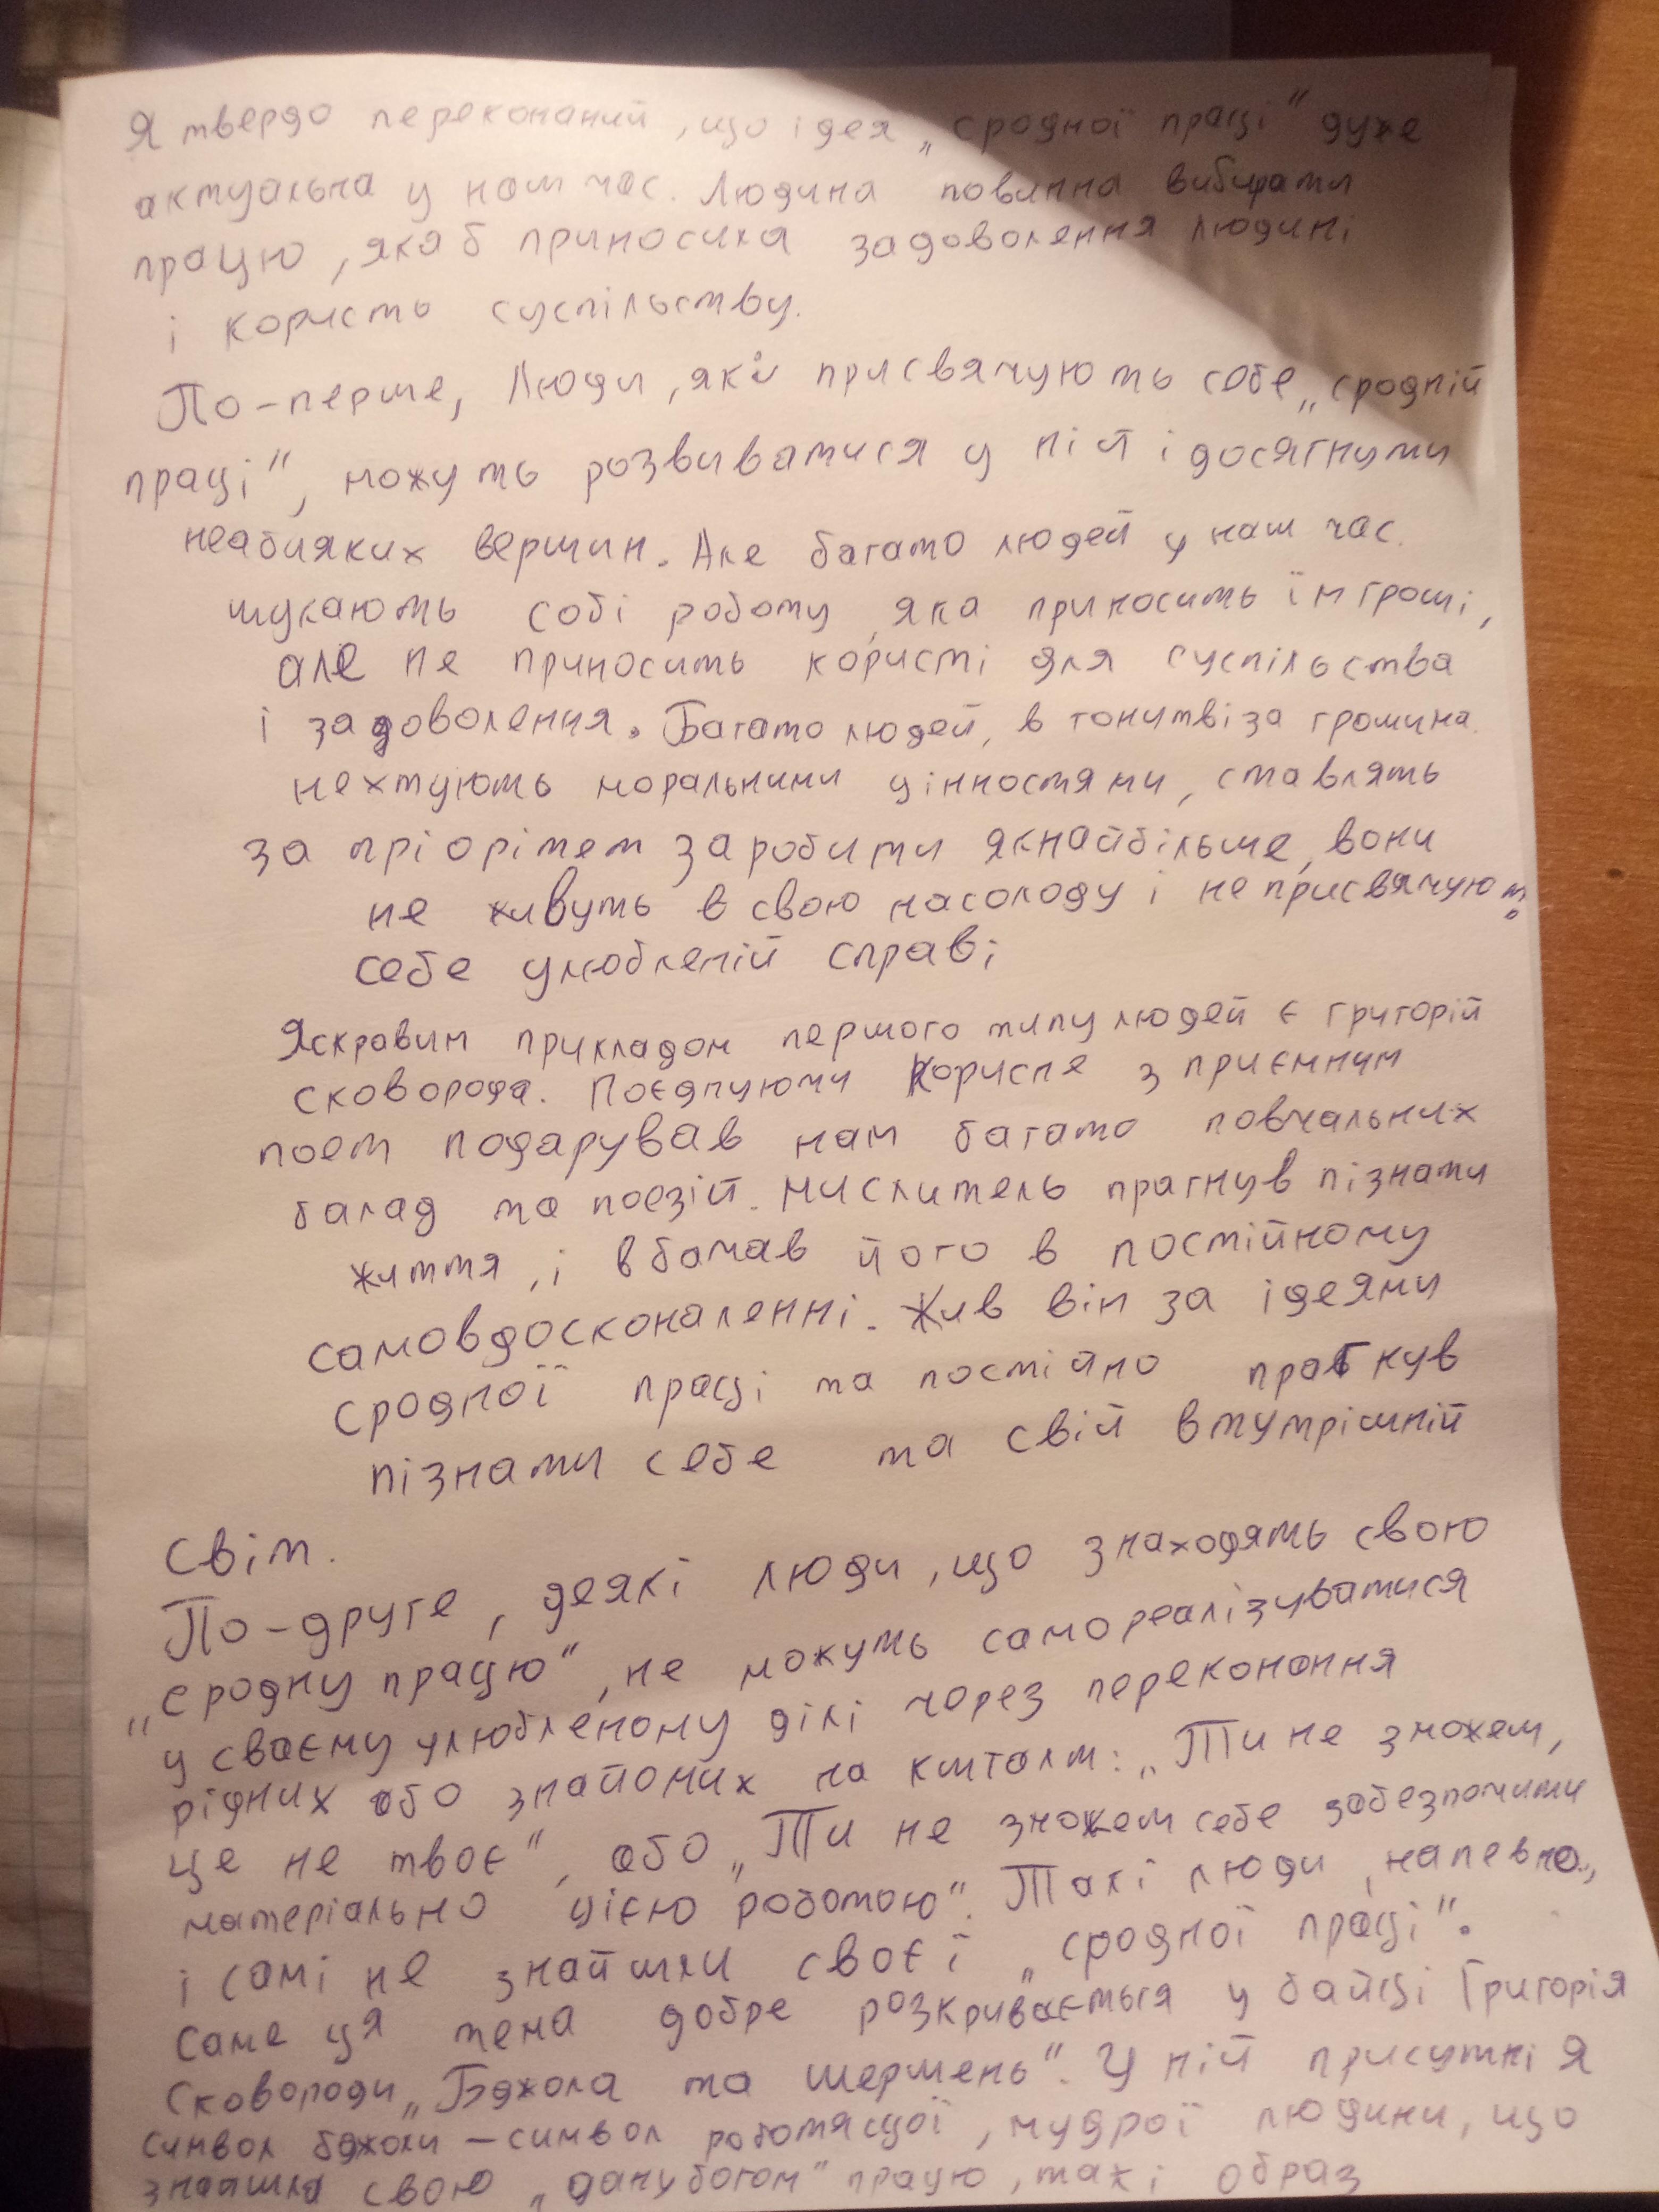 Я твердо переконаний, що ідея „сродної праці" дуже
актуальна у наш час. Людина повинна вибирати
працю, яка б приносила задоволення людині
і користь суспільству.
По-перше, люди, які присвячують себе „сродній
праці", можуть розвиватися у ній і досягнути
неабияких вершин. Але багато людей у наш час.
шукають собі роботу, яка приносить їм гроші,
але не приносить користі для суспільства
і задоволення. Багато людей, в гонитві за грошима
нехтують моральними цінностями, ставлять
за пріорітет заробити якнайбільше, вони
не живуть в свою насолоду і не присвячують
себе улюбленій справі
Яскравим прикладом першого типу людей є Григорій
Сковорода. Поєднуючи корисне з приємним
поет подарував нам багато повчальних
балад та поезій. Мислитель прагнув пізнати
життя, і вбачав його в постійному
самовдосконаленні. Жив він за ідеями
сродної праці та постійно прагнув
пізнати себе та свій внутрішній
світ.
По-друге, деякі люди, що знаходять свою
„сродну працю", не можуть самореалізуватися
у своєму улюбленому ділі через переконання
рідних або знайомих на кшталт: „Ти не зможеш,
це не твоє", або „Ти не зможеш себе забезпечити
матеріально цією роботою". Такі люди, напевно,
і самі не знайшли своєї „сродної праці".
Саме ця тема добре розкривається у байці Григорія
Сковороди „Бджола та Шершень". У ній присутні я
символ бджоли – символ роботящої, мудрої людини, що
знайшла свою „дану богом" працю, так і образ